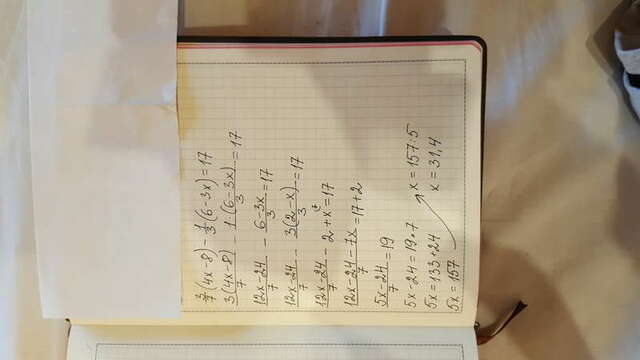 3/7 (4x-8) - 1/3 (6-3x) = 17
3(4x-8)/7 - 1·(6-3x)/3 = 17
12x-24/7 - 6-3x/3 = 17
12x-24/7 - 3(2-x)/3 = 17
12x-24/7 - 2 + x = 17
12x-24-7x/7 = 17+2
5x-24/7 = 19
5x-24 = 19·7
5x = 133+24
5x = 157
x = 157:5
x = 31,4